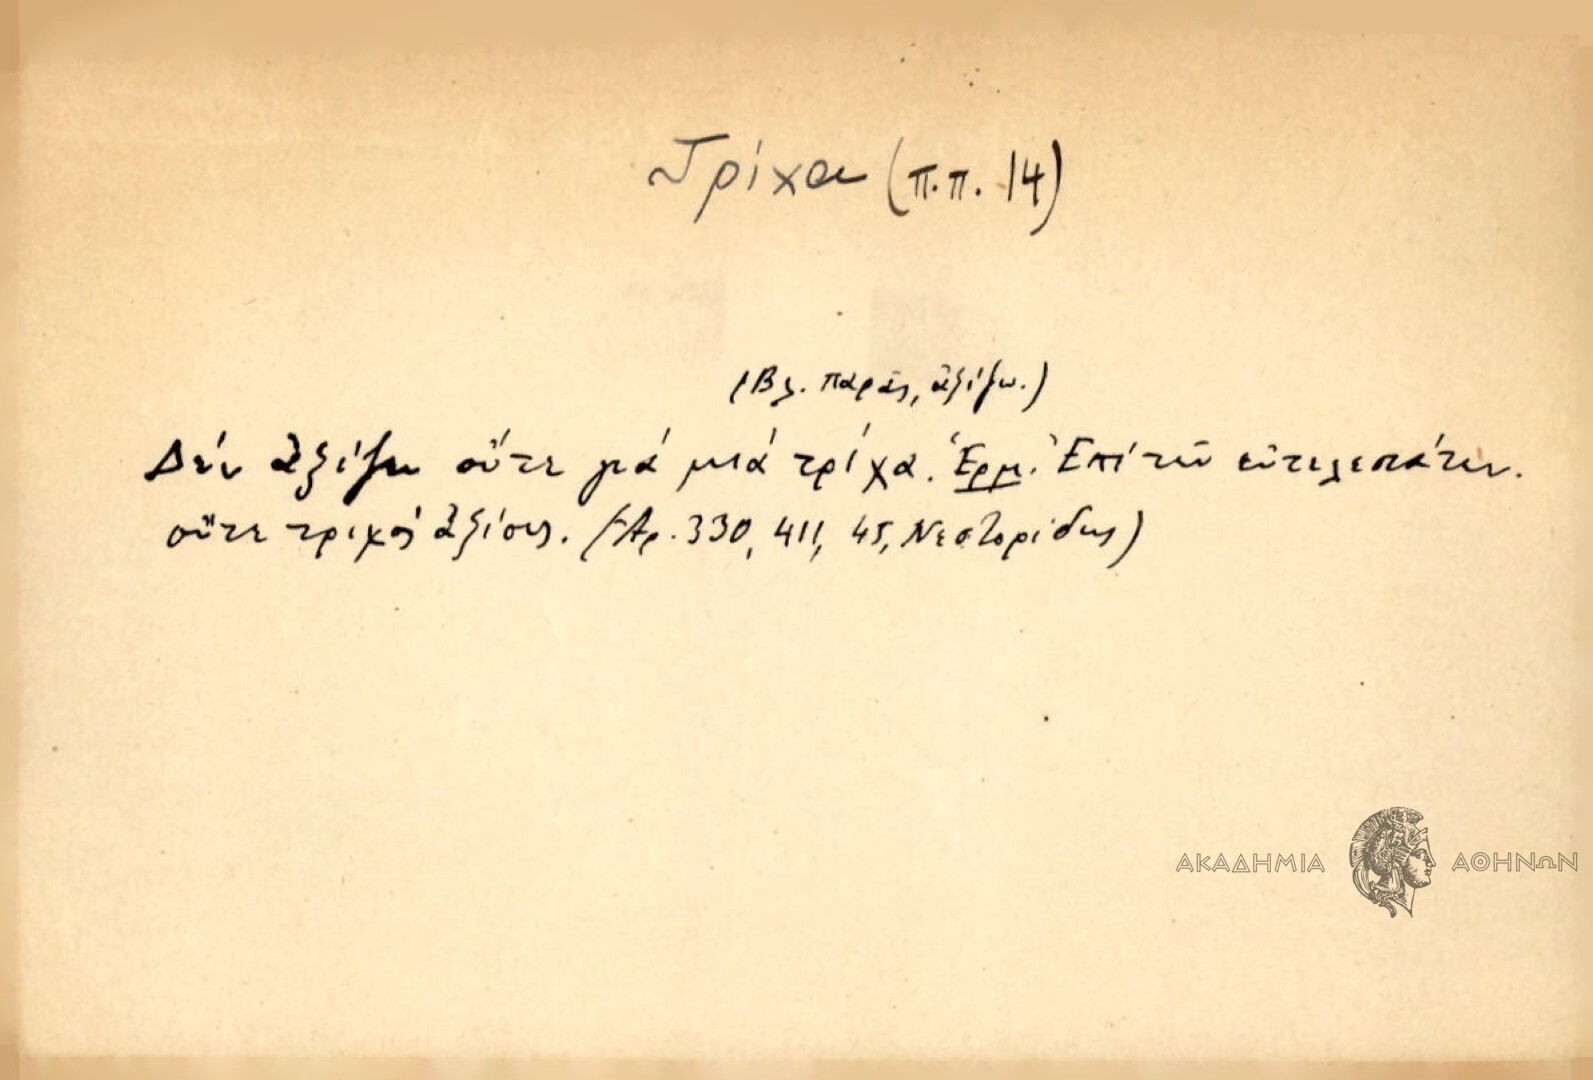 Τρίχα (π.π. 14)
(Βλ. παράς, ἀξίζω.)
Δέν ἀξίζει οὔτε γιά μιά τρίχα. Ἑρμ. Ἐπί τῶν εὐτελεστάτων.
οὔτε τριχός ἄξιος. (Ἀρ. 330, 411, 45, Νεστορίδης)
ΑΚΑΔΗΜΙΑ ΑΘΗΝΩΝ